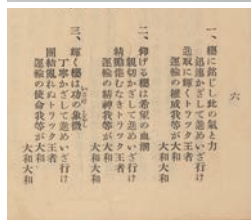 六
一、輝に銘じし此の氣と力
迅速かざして進めいざ行け
進取に輝くトラック王者
運輸の權威我等が大和
大和大和
二、仰げる輝は希望の血潮
親切かざして進めいざ行け
精勵倦むなきトラック王者
運輸の精神我等が大和
大和大和
三、輝く輝は功の象徴
丁寧かざして進めいざ行け
團結亂れぬトラック王者
運輸の使命我等が大和
大和大和